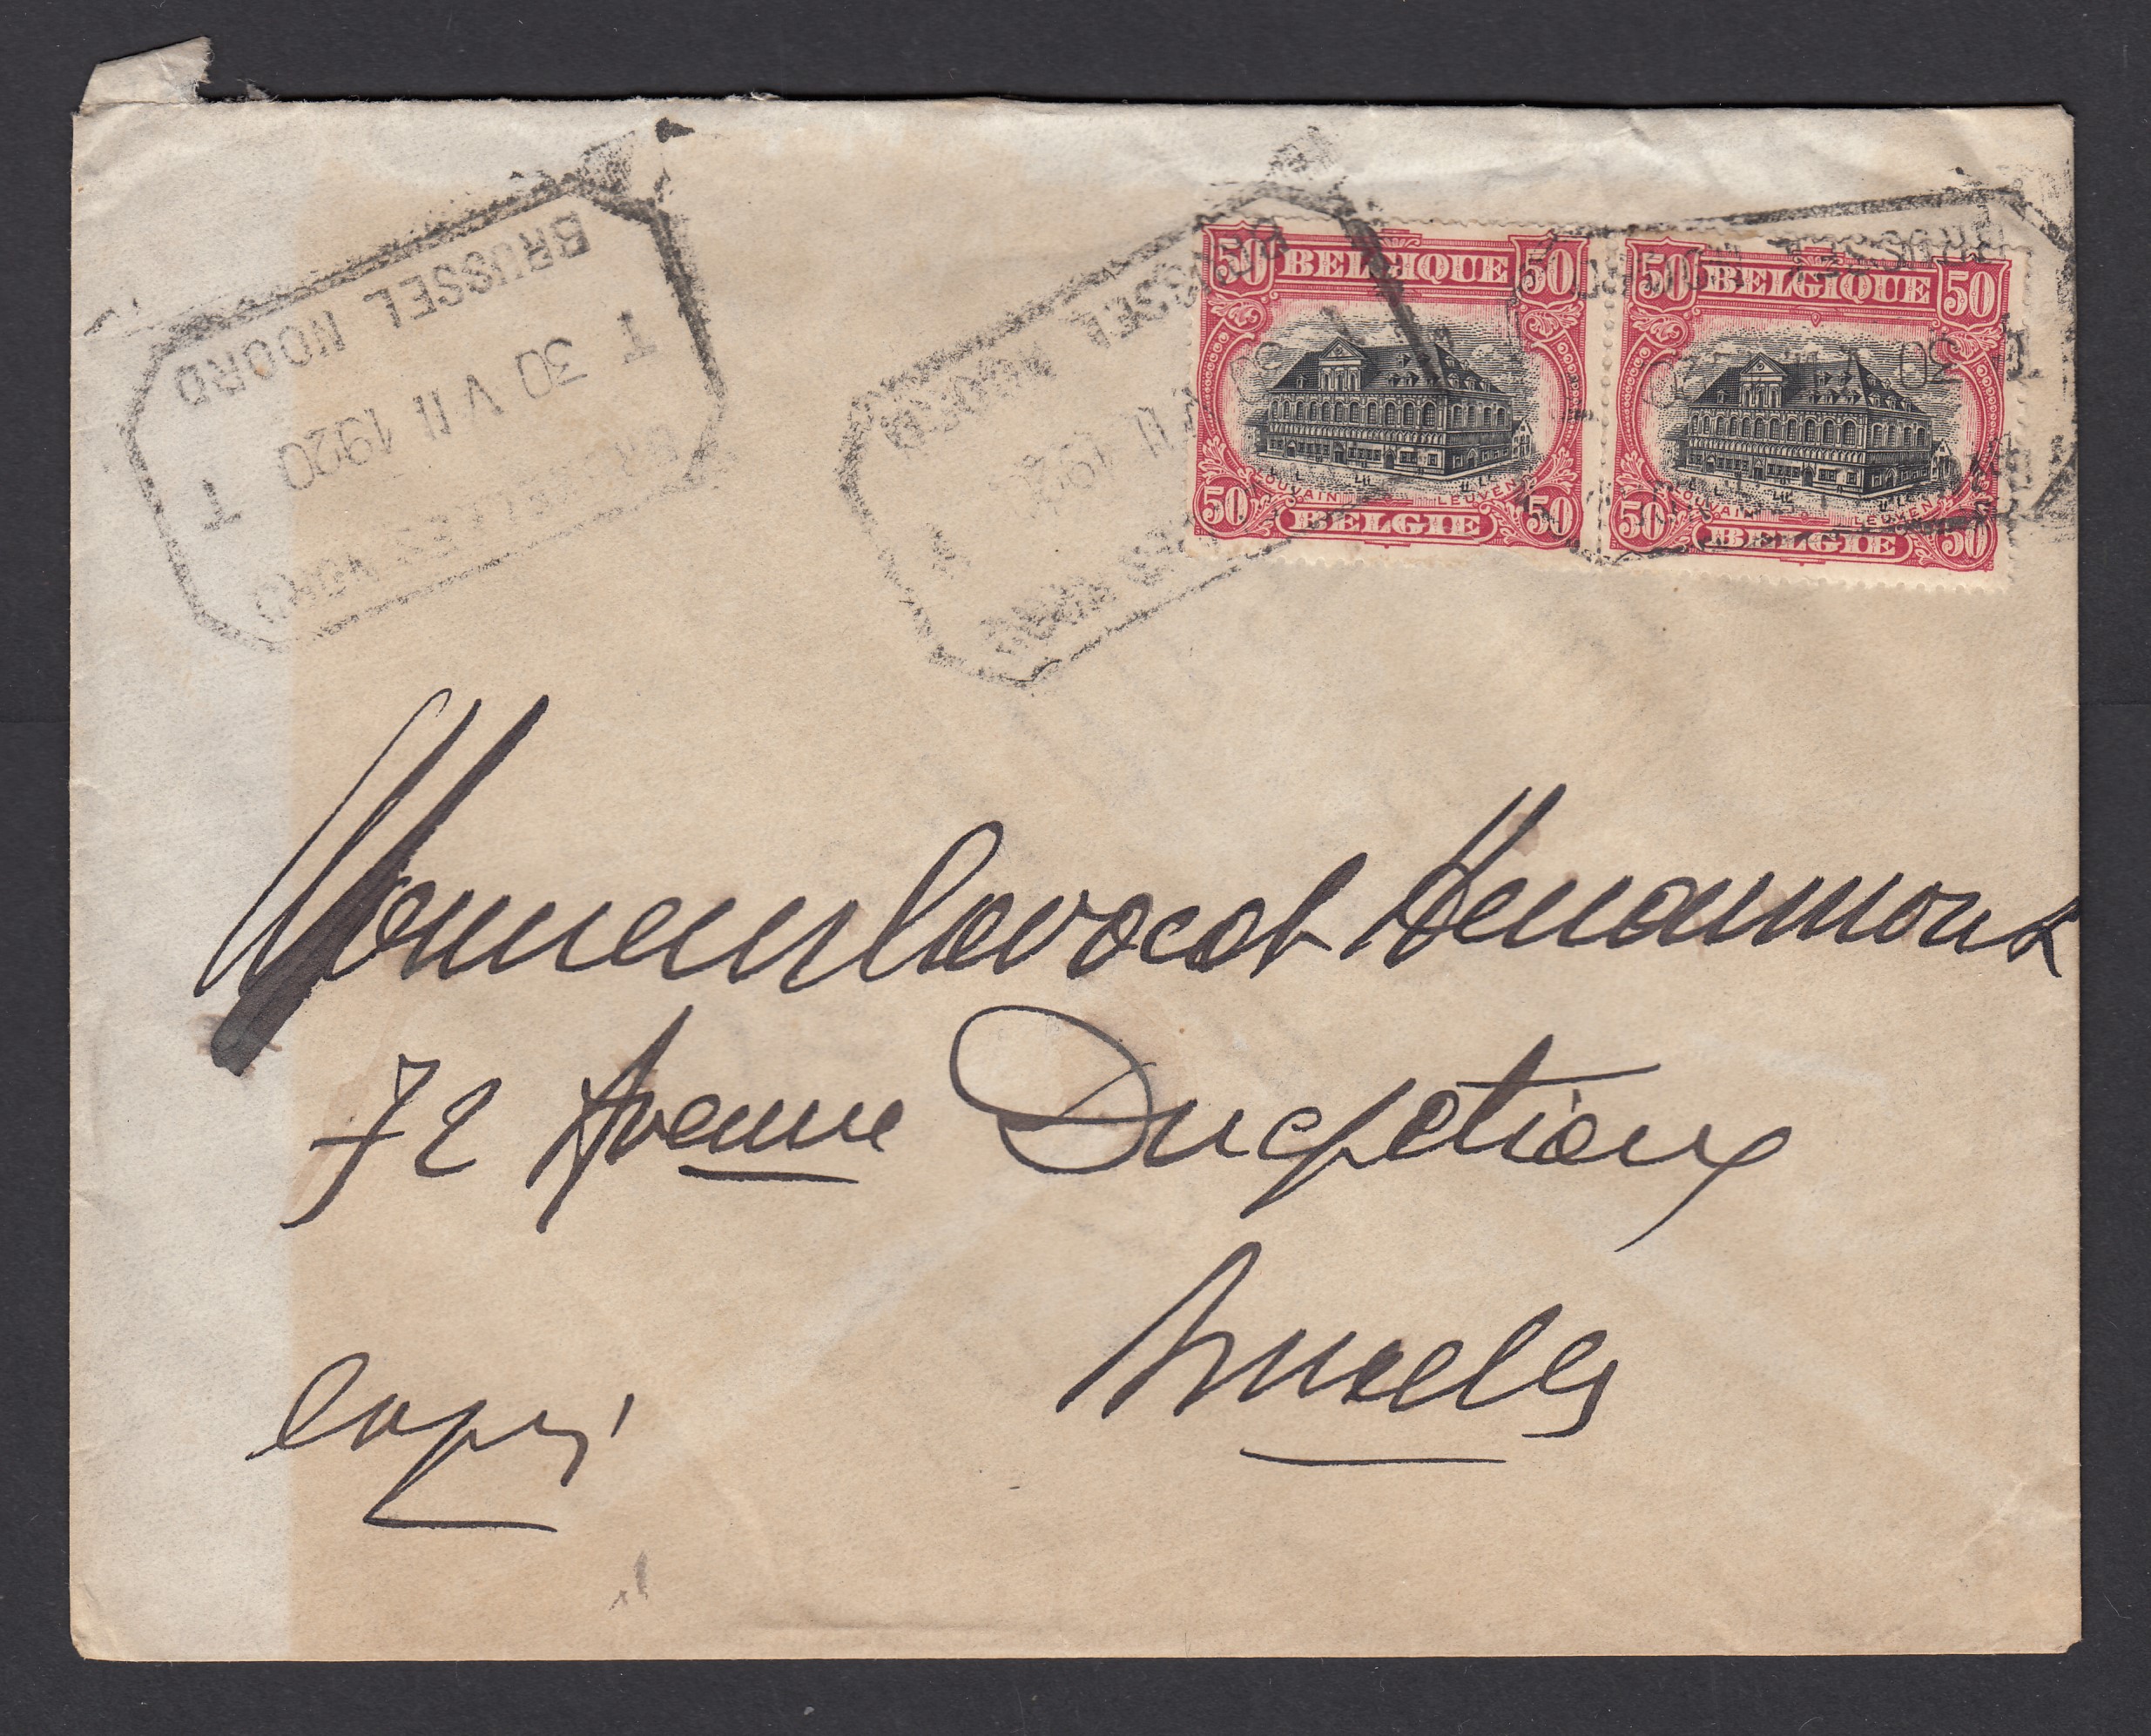 BRUSSEL NOORD
T 30 VII 1920 T
BRUXELLES NORD
BRUSSEL NOORD
VII 192
NORD
BRUSSEL NOORD
T 30 V
50 BELGIQUE 50
LOUVAIN LEUVEN
50 BELGIE 50
50 BELGIQUE 50
LOUVAIN LEUVEN
50 BELGIE 50
Monsieur l'avocat
72 Avenue Ducpetiaux
Bruxelles